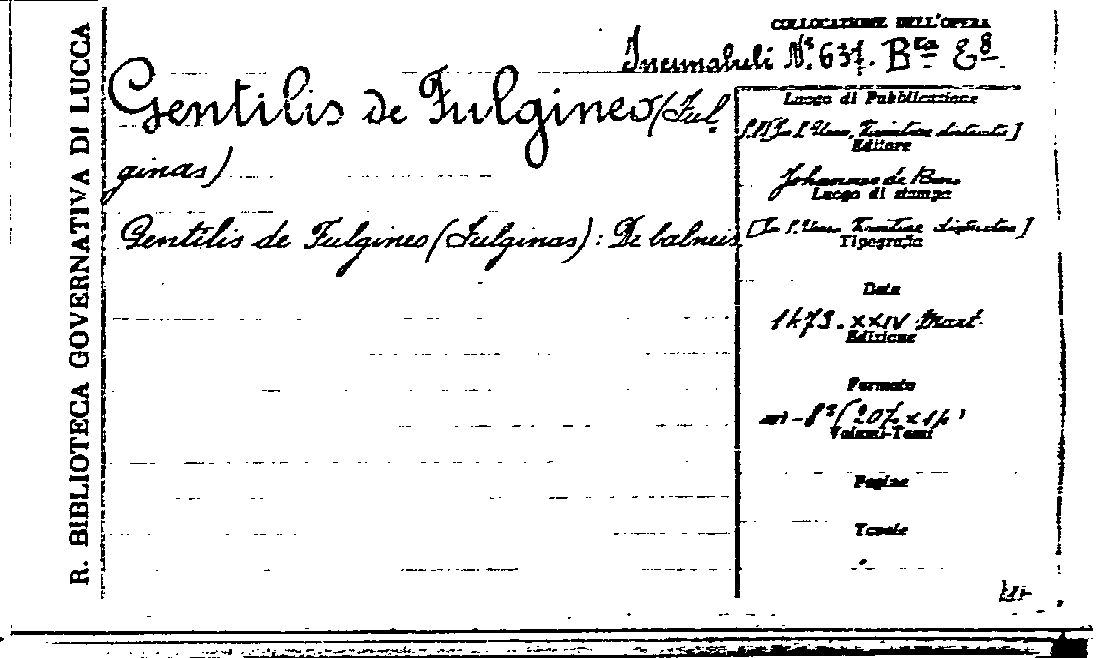 R. BIBLIOTECA GOVERNATIVA DI LUCCA
COLLOCAZIONE DELL'OPERA
Incunabuli N.° 637. B.ta E 8
Gentilis de Fulgineo (Ful-
ginas)
Gentilis de Fulgineo (Fulginas): De balneis
Luogo di Pubblicazione
Editore
Johannes de
Luogo di stampa
Tipografia
Data
1473. XXIV Mart.
Edizione
Formato
Volumi-Tomi
Pagine
Tavole